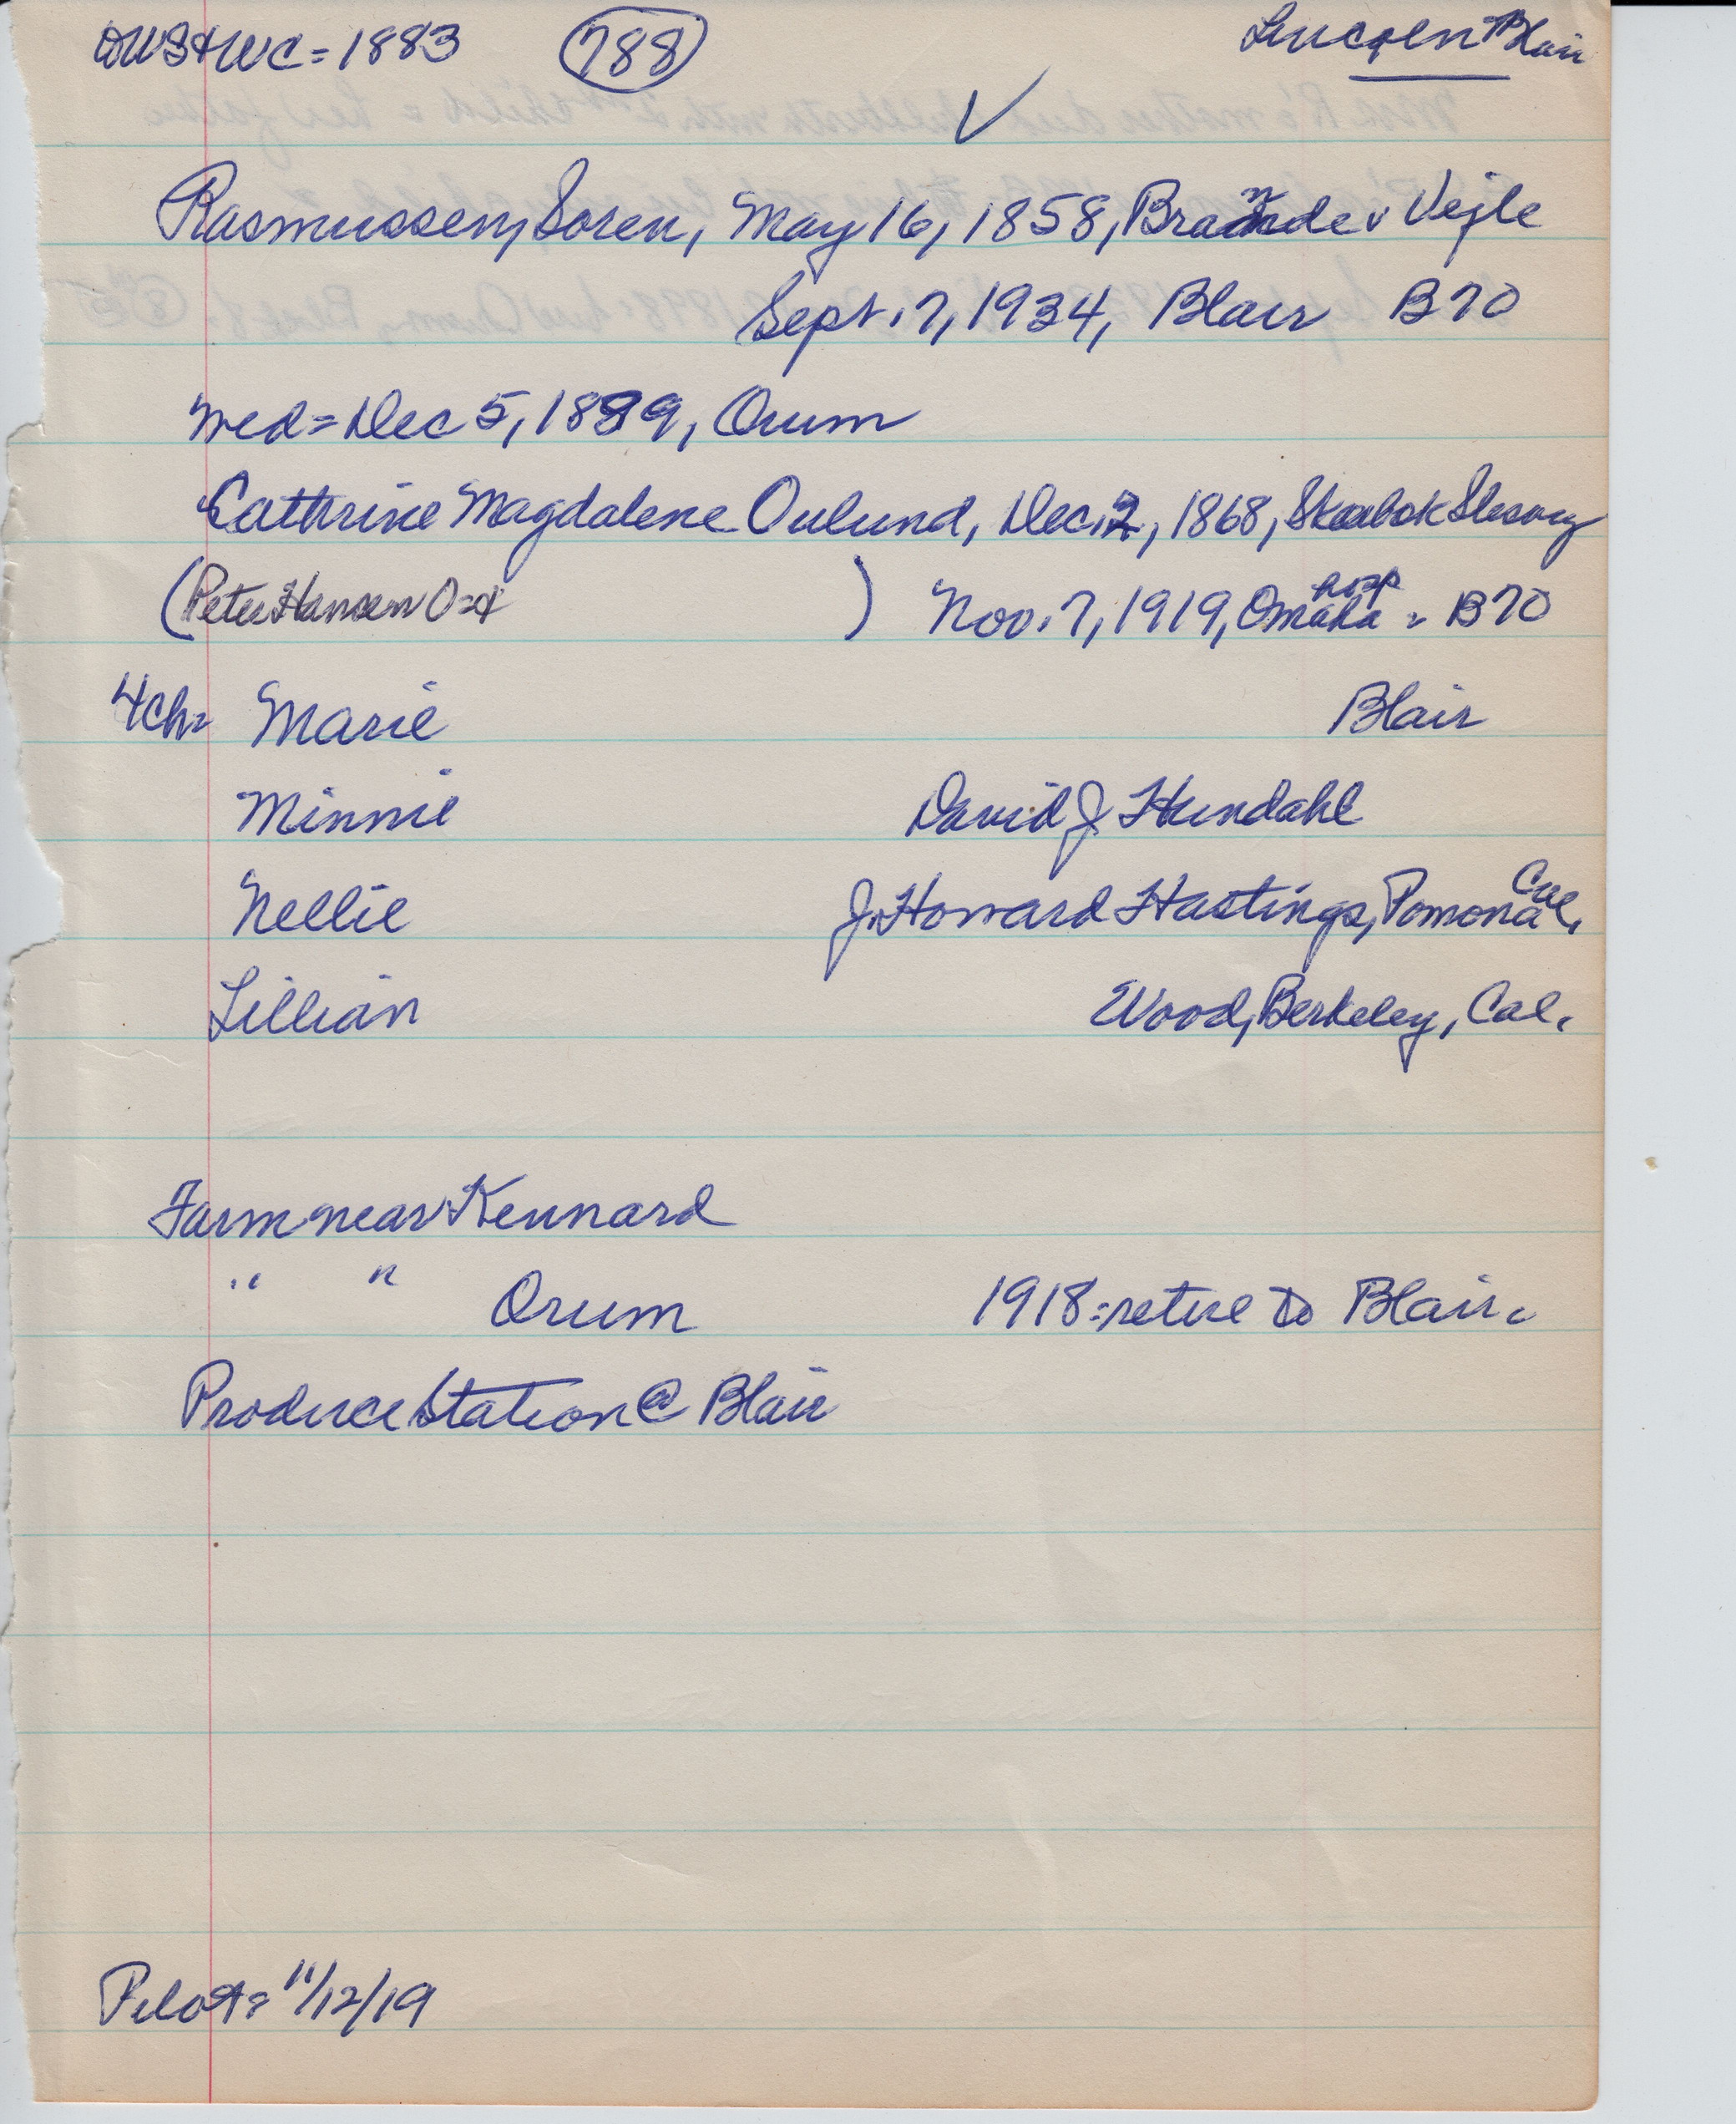 = 1883 788 Lincoln Blair
Rasmussen, Soren, May 16, 1858, Brande v Vejle
Sept. 7, 1934, Blair B70
wed = Dec 5, 1889, Orum
Cathrine Magdalene Oulund, Dec. 2, 1868, Slesvig
(Peter Hansen O=x ) Nov. 7, 1919, Omaha hosp = B70
4ch= Marie Blair
Minnie David J Hundahl
Nellie J. Howard Hastings, Pomona Cal.
Lillian Wood, Berkeley, Cal.
Farm near Kennard
" " Orum 1918 = retire to Blair.
Produce Station @ Blair
Pilot = 11/12/19